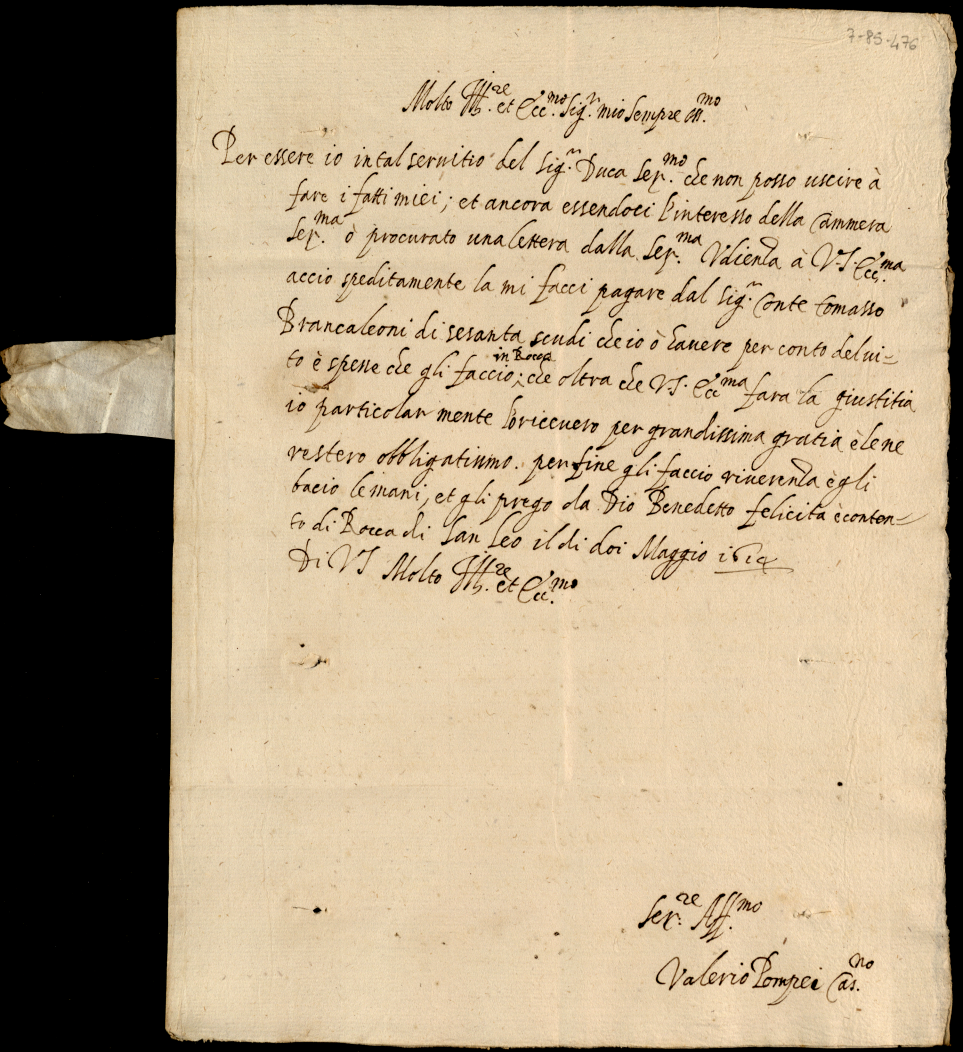 7-85-476
Molto Ill.re et Ecc.mo Sig.r mio sempre oss.mo
Per essere io in tal servitio del Sig.r Duca Ser.mo che non posso uscire à
fare i fatti miei; et ancora essendoci l'interesso della Cammera
Ser.ma ò procurato una lettera dalla Ser.ma Udienza à V.S. Ecc.ma
accio speditamente la mi facci pagare dal Sig.r Conte Tomasso
Brancaleoni di sesanta scudi che io ò havere per conto del vi-
to è spesse che gli faccio in Rocca; che oltra che V.S. Ecc.ma fara la giustitia
io particolar mente lo riccevero per grandissima gratia è lene
restero obbligatissimo. per fine gli faccio riverenza è gli
bacio le mani, et gli prego da Dio Benedetto felicita è conten-
to di Rocca di San Leo il di doi Maggio
Di VS Molto Ill.re et Ecc.mo
Ser.re Aff.mo
Valerio Pompei Cas.no